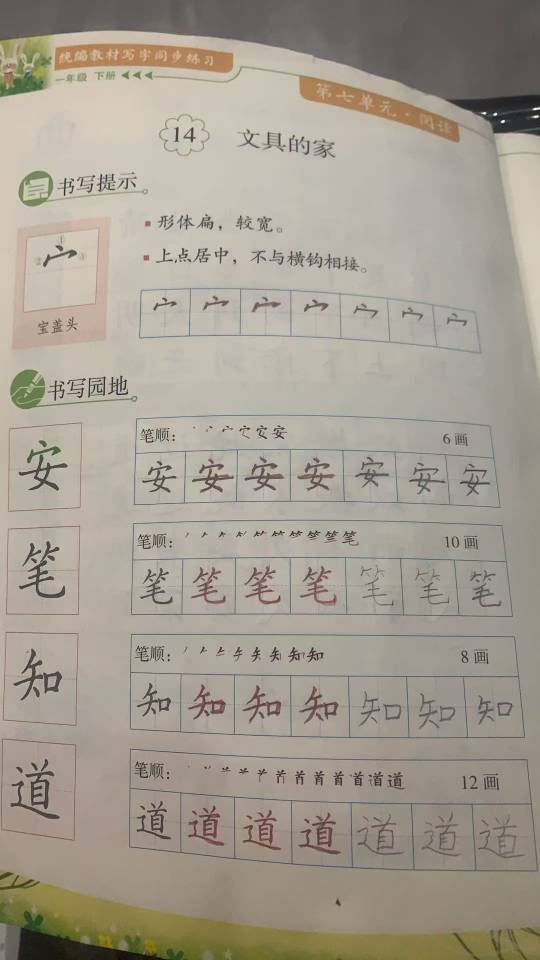 统编教材写字同步练习
一年级 下册
第七单元·阅读
14 文具的家
书写提示
宀
宝盖头
形体扁，较宽。
上点居中，不与横钩相接。
宀 宀 宀 宀 宀 宀 宀
书写园地
安
笔顺： 安 6画
安 安 安 安 安 安 安
笔
笔顺： 笔 10画
笔 笔 笔 笔 笔 笔 笔
知
笔顺： 知 8画
知 知 知 知 知 知 知
道
笔顺： 道 12画
道 道 道 道 道 道 道